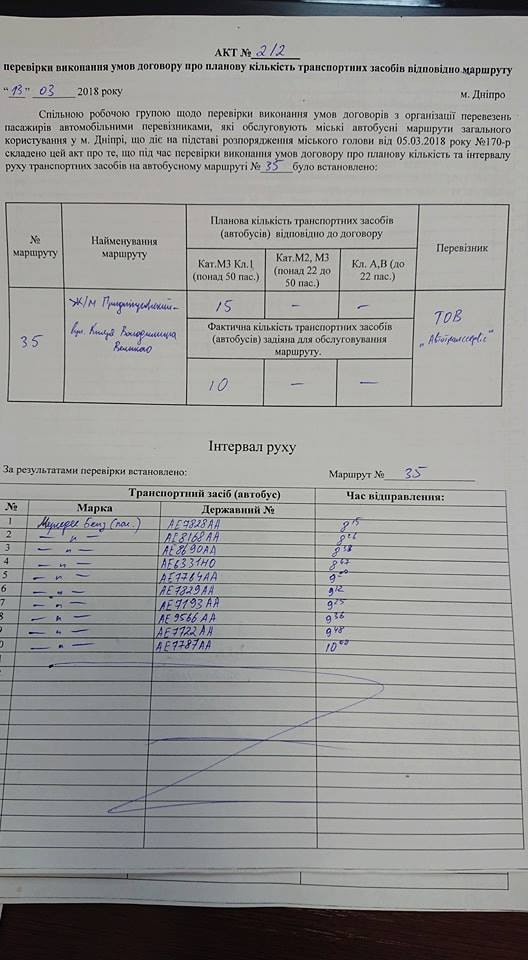 АКТ № 2/2
перевірки виконання умов договору про планову кількість транспортних засобів відповідно маршруту
“ 13 ” 03 2018 року м. Дніпро
Спільною робочою групою щодо перевірки виконання умов договорів з організації перевезень
пасажирів автомобільними перевізниками, які обслуговують міські автобусні маршрути загального
користування у м. Дніпрі, що діє на підставі розпорядження міського голови від 05.03.2018 року №170-р
складено цей акт про те, що під час перевірки виконання умов договору про планову кількість та інтервалу
руху транспортних засобів на автобусному маршруті № 35 було встановлено:
№ маршруту
Найменування маршруту
Планова кількість транспортних засобів (автобусів) відповідно до договору
Перевізник
Кат.М3 Кл.І (понад 50 пас.)
Кат.М2, М3 (понад 22 до 50 пас.)
Кл. А,В (до 22 пас.)
35
Ж/М Придніпровський-
вул. Князя Володимира
Великого
15 – –
ТОВ
„Автотранссервіс"
Фактична кількість транспортних засобів
(автобусів) задіяна для обслуговування
маршруту.
10 – –
Інтервал руху
За результатами перевірки встановлено: Маршрут № 35
Транспортний засіб (автобус) Час відправлення:
№ Марка Державний №
1 Мерседес Бенц AE7828AA 8 15
2 — „ — AE8168AA 8 26
3 — „ — AE8690AA 8 38
4 — „ — AE6331HO 8 47
5 — „ — AE7764AA 9 00
6 — „ — AE7829AA 9 12
7 — „ — AE7193AA 9 25
8 — „ — AE9566AA 9 36
9 — „ — AE7722AA 9 48
0 — „ — AE7787AA 10 00